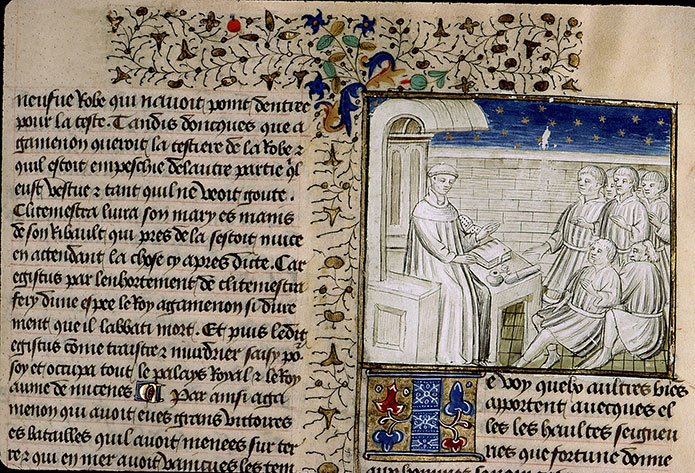 neufue Robe qui nauoit point dentree
pour la teste. Tandis doncques que a
gamenon queroit la testiere de la Robe et
quil estoit empeschie de lautre partie ql
eust vestue et tant quil ne veoit goute.
Clitemestra liura son mary es mains
de son Ribault qui pres de la sestoit muce
en attendant la chose cy apres dicte. Car
egistus par lenhortement de clitemestra
fery dune espee le Roy agamenon si dure
ment que il labbati mort. Et puis ledit
egistus come traistre et murdrier saisy po
soy et occupa tout le palays Royal et le Roy
aume de micenes Par ainsi aga
menon qui auoit eues grans victoires
es batailles quil auoit menees sur ter
re et qui en mer auoit vaincues les tem
e voy que les aultres vices
apportent auecques el
les les haultes seigneu
ries que fortune donne